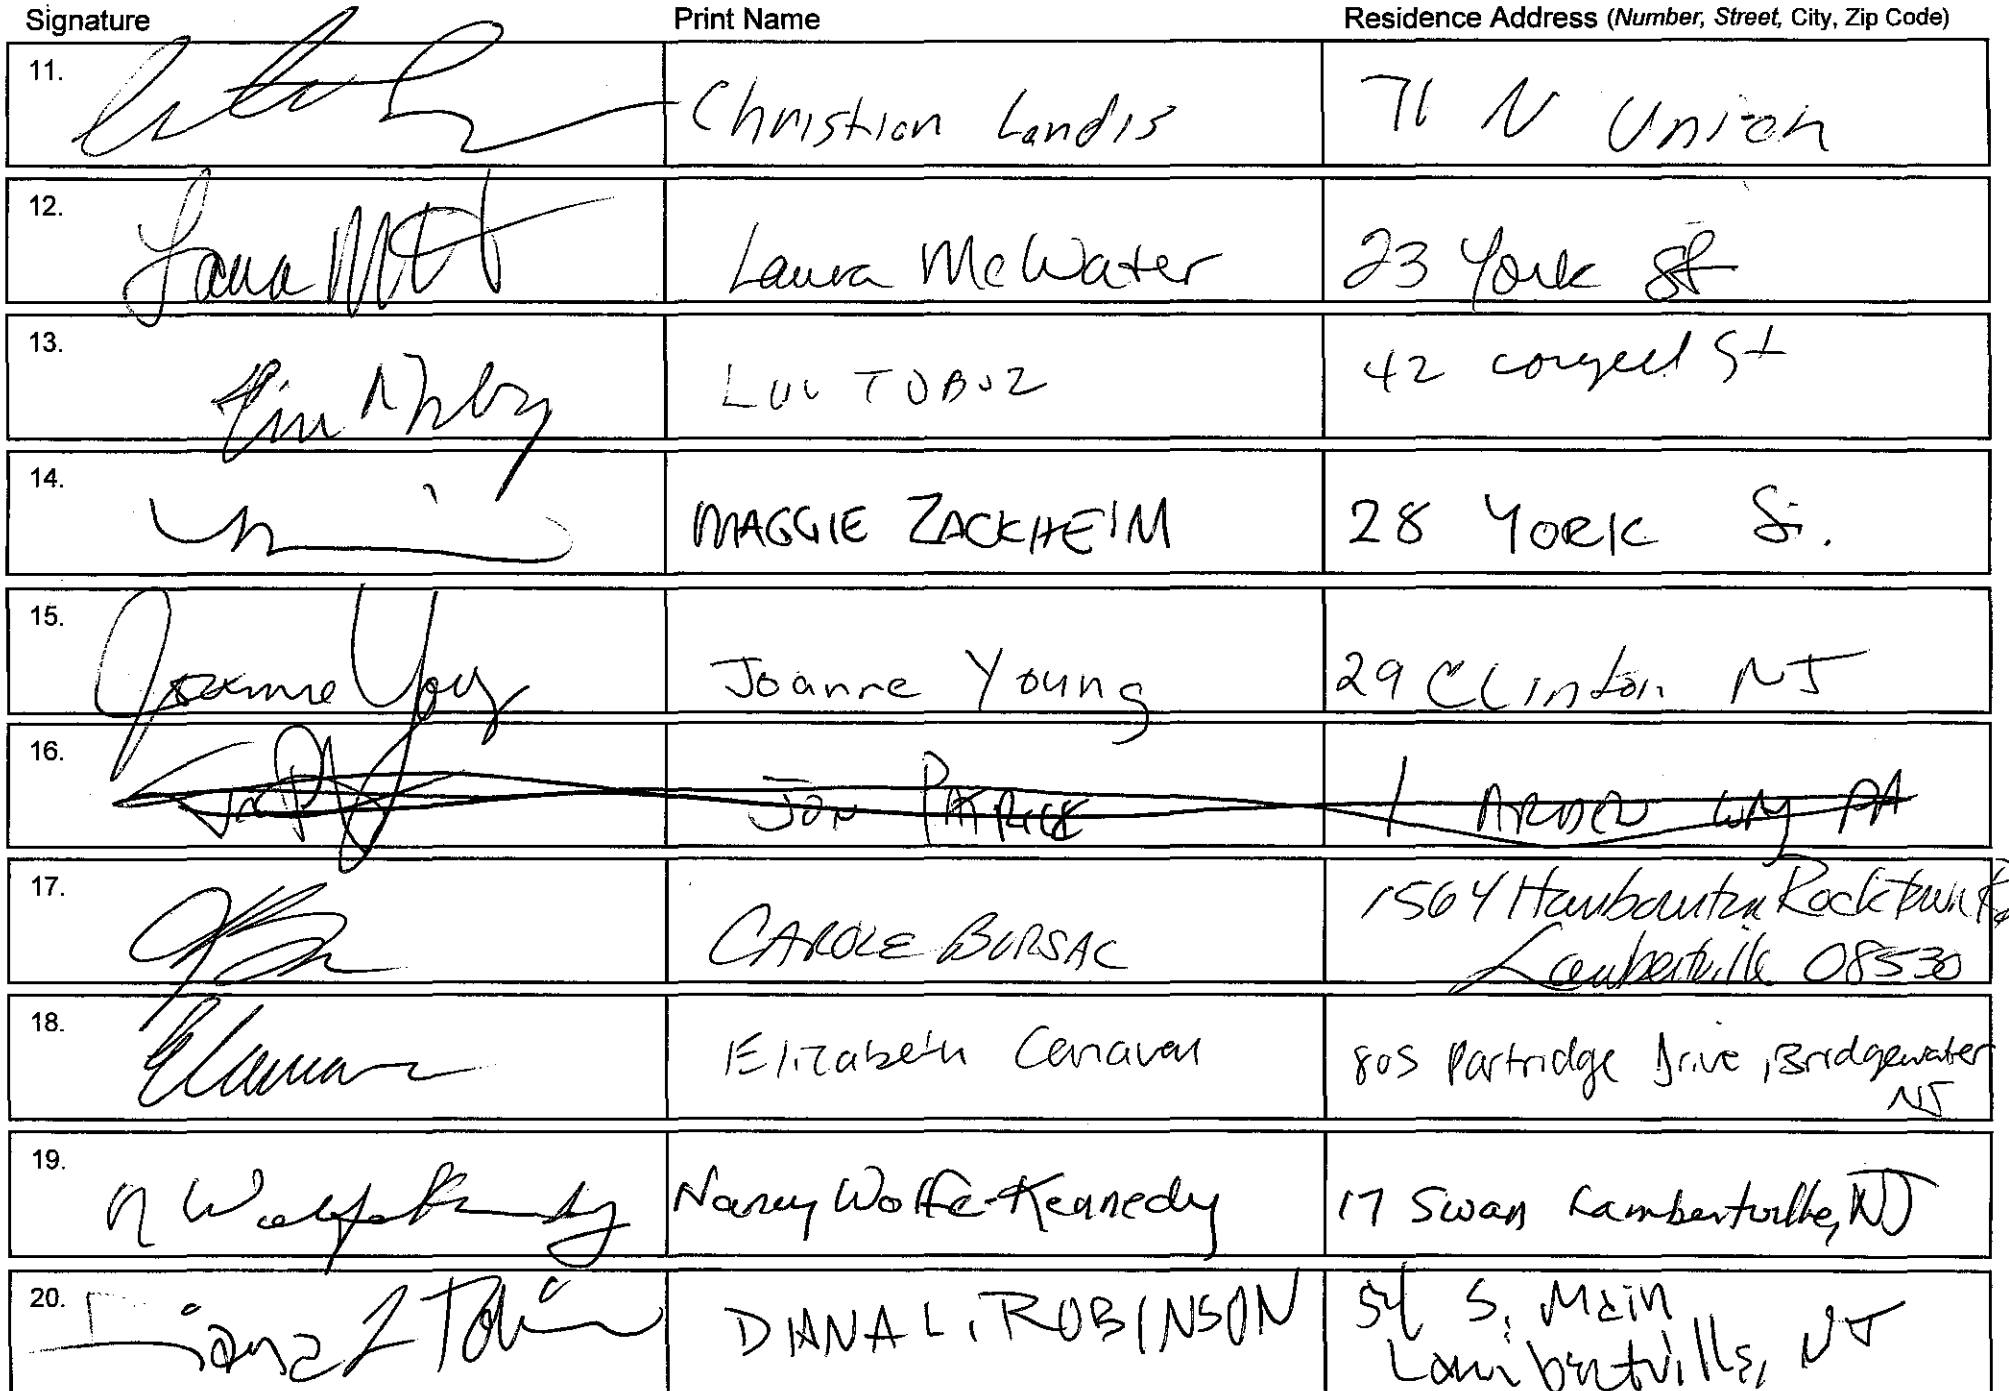 Signature Print Name Residence Address (Number, Street, City, Zip Code)
11. Christian Landis 71 N Union
12. Laura McWater 23 York St
13. 42 St
14. MAGGIE ZACKHEIM 28 York St.
15. Joanne Young Joanne Young 29 Clinton NJ
16. JON PATRICK 1 ARDEN WAY PA
17. CAROLE BURSAC 1564 Rocktown Rd
Lambertville 08530
18. Elizabeth Canavan 805 Partridge Drive, Bridgewater
NJ
19. Nancy Wolfe-Kennedy 17 Swan Lambertville, NJ
20. DIANA L. ROBINSON 54 S. Main
Lambertville, NJ